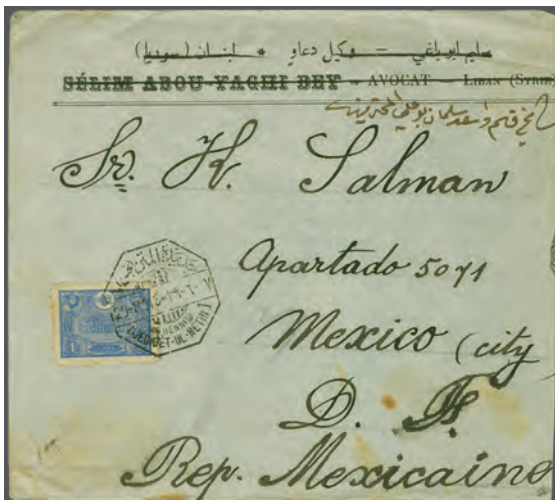 سليم ابو ياغي – وكيل دعاوٍ * لبنان (سوريا)
SÉLIM ABOU-YAGHI BEY - AVOCAT - LIBAN (SYRIE)
Sr. K. Salman
Apartado 5071
Mexico (city
D. F.
Rep. Mexicaine
DJEDIDET-UL-METIN 1
1